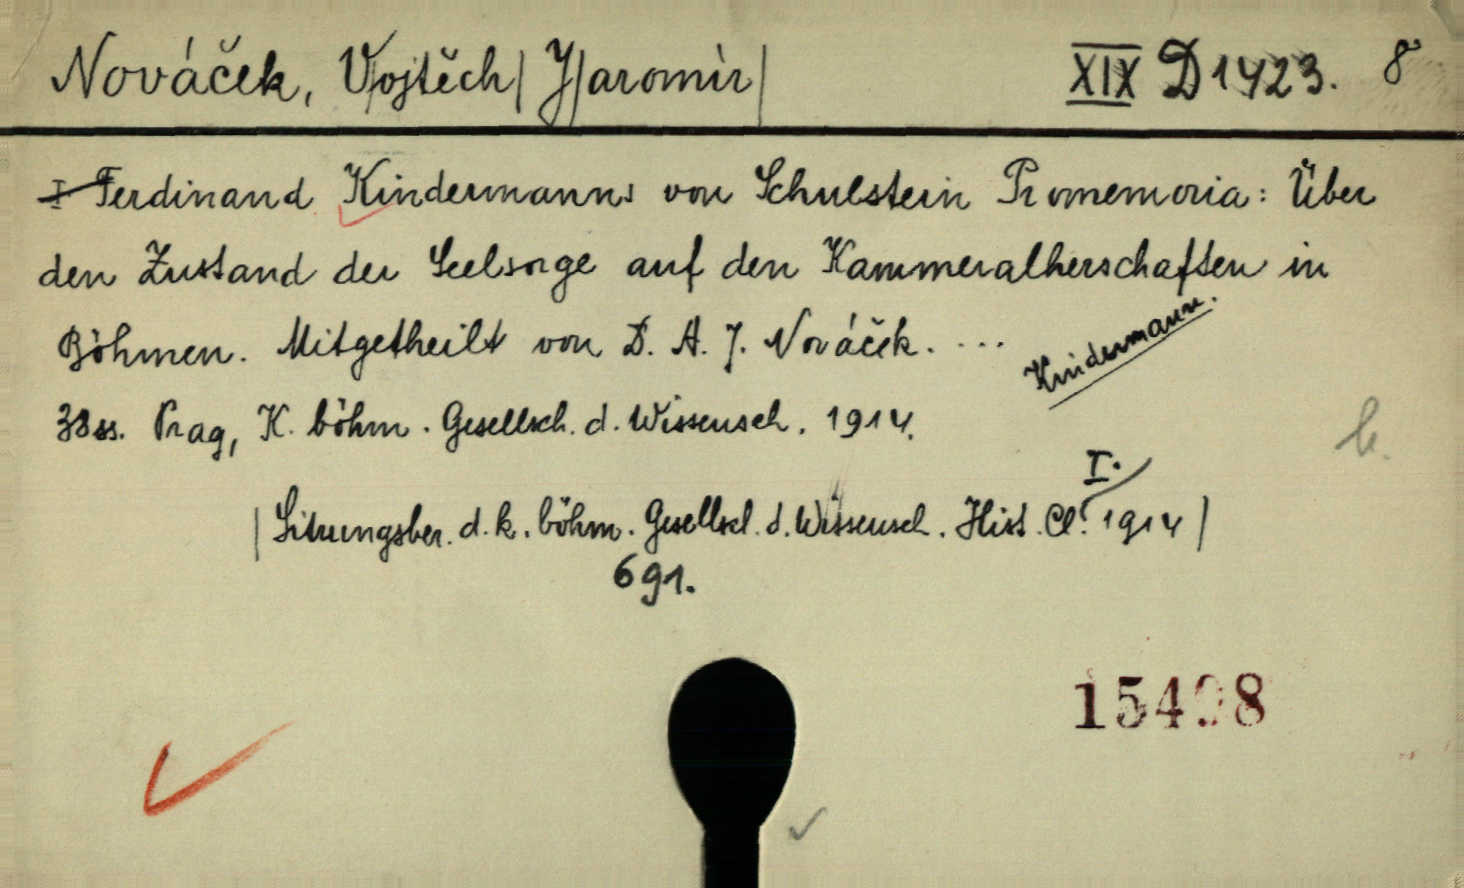 Nováček, V/ojtěch/ J/aromír/ XIX D 1423. 8
I Ferdinand Kindermanns von Schulstein Promemoria: Über
den Zustand der Seelsorge auf den Kammeralherschaften in
Böhmen. Mitgetheilt von D. A. J. Nováček. ...
Kindermann.
38 ss. Prag, K. böhm. Gesellsch. d. Wissensch. 1914.
I.
/Sitzungsber. d. k. böhm. Gesellsch. d. Wissensch. Hist. Cl. 1914/
691.